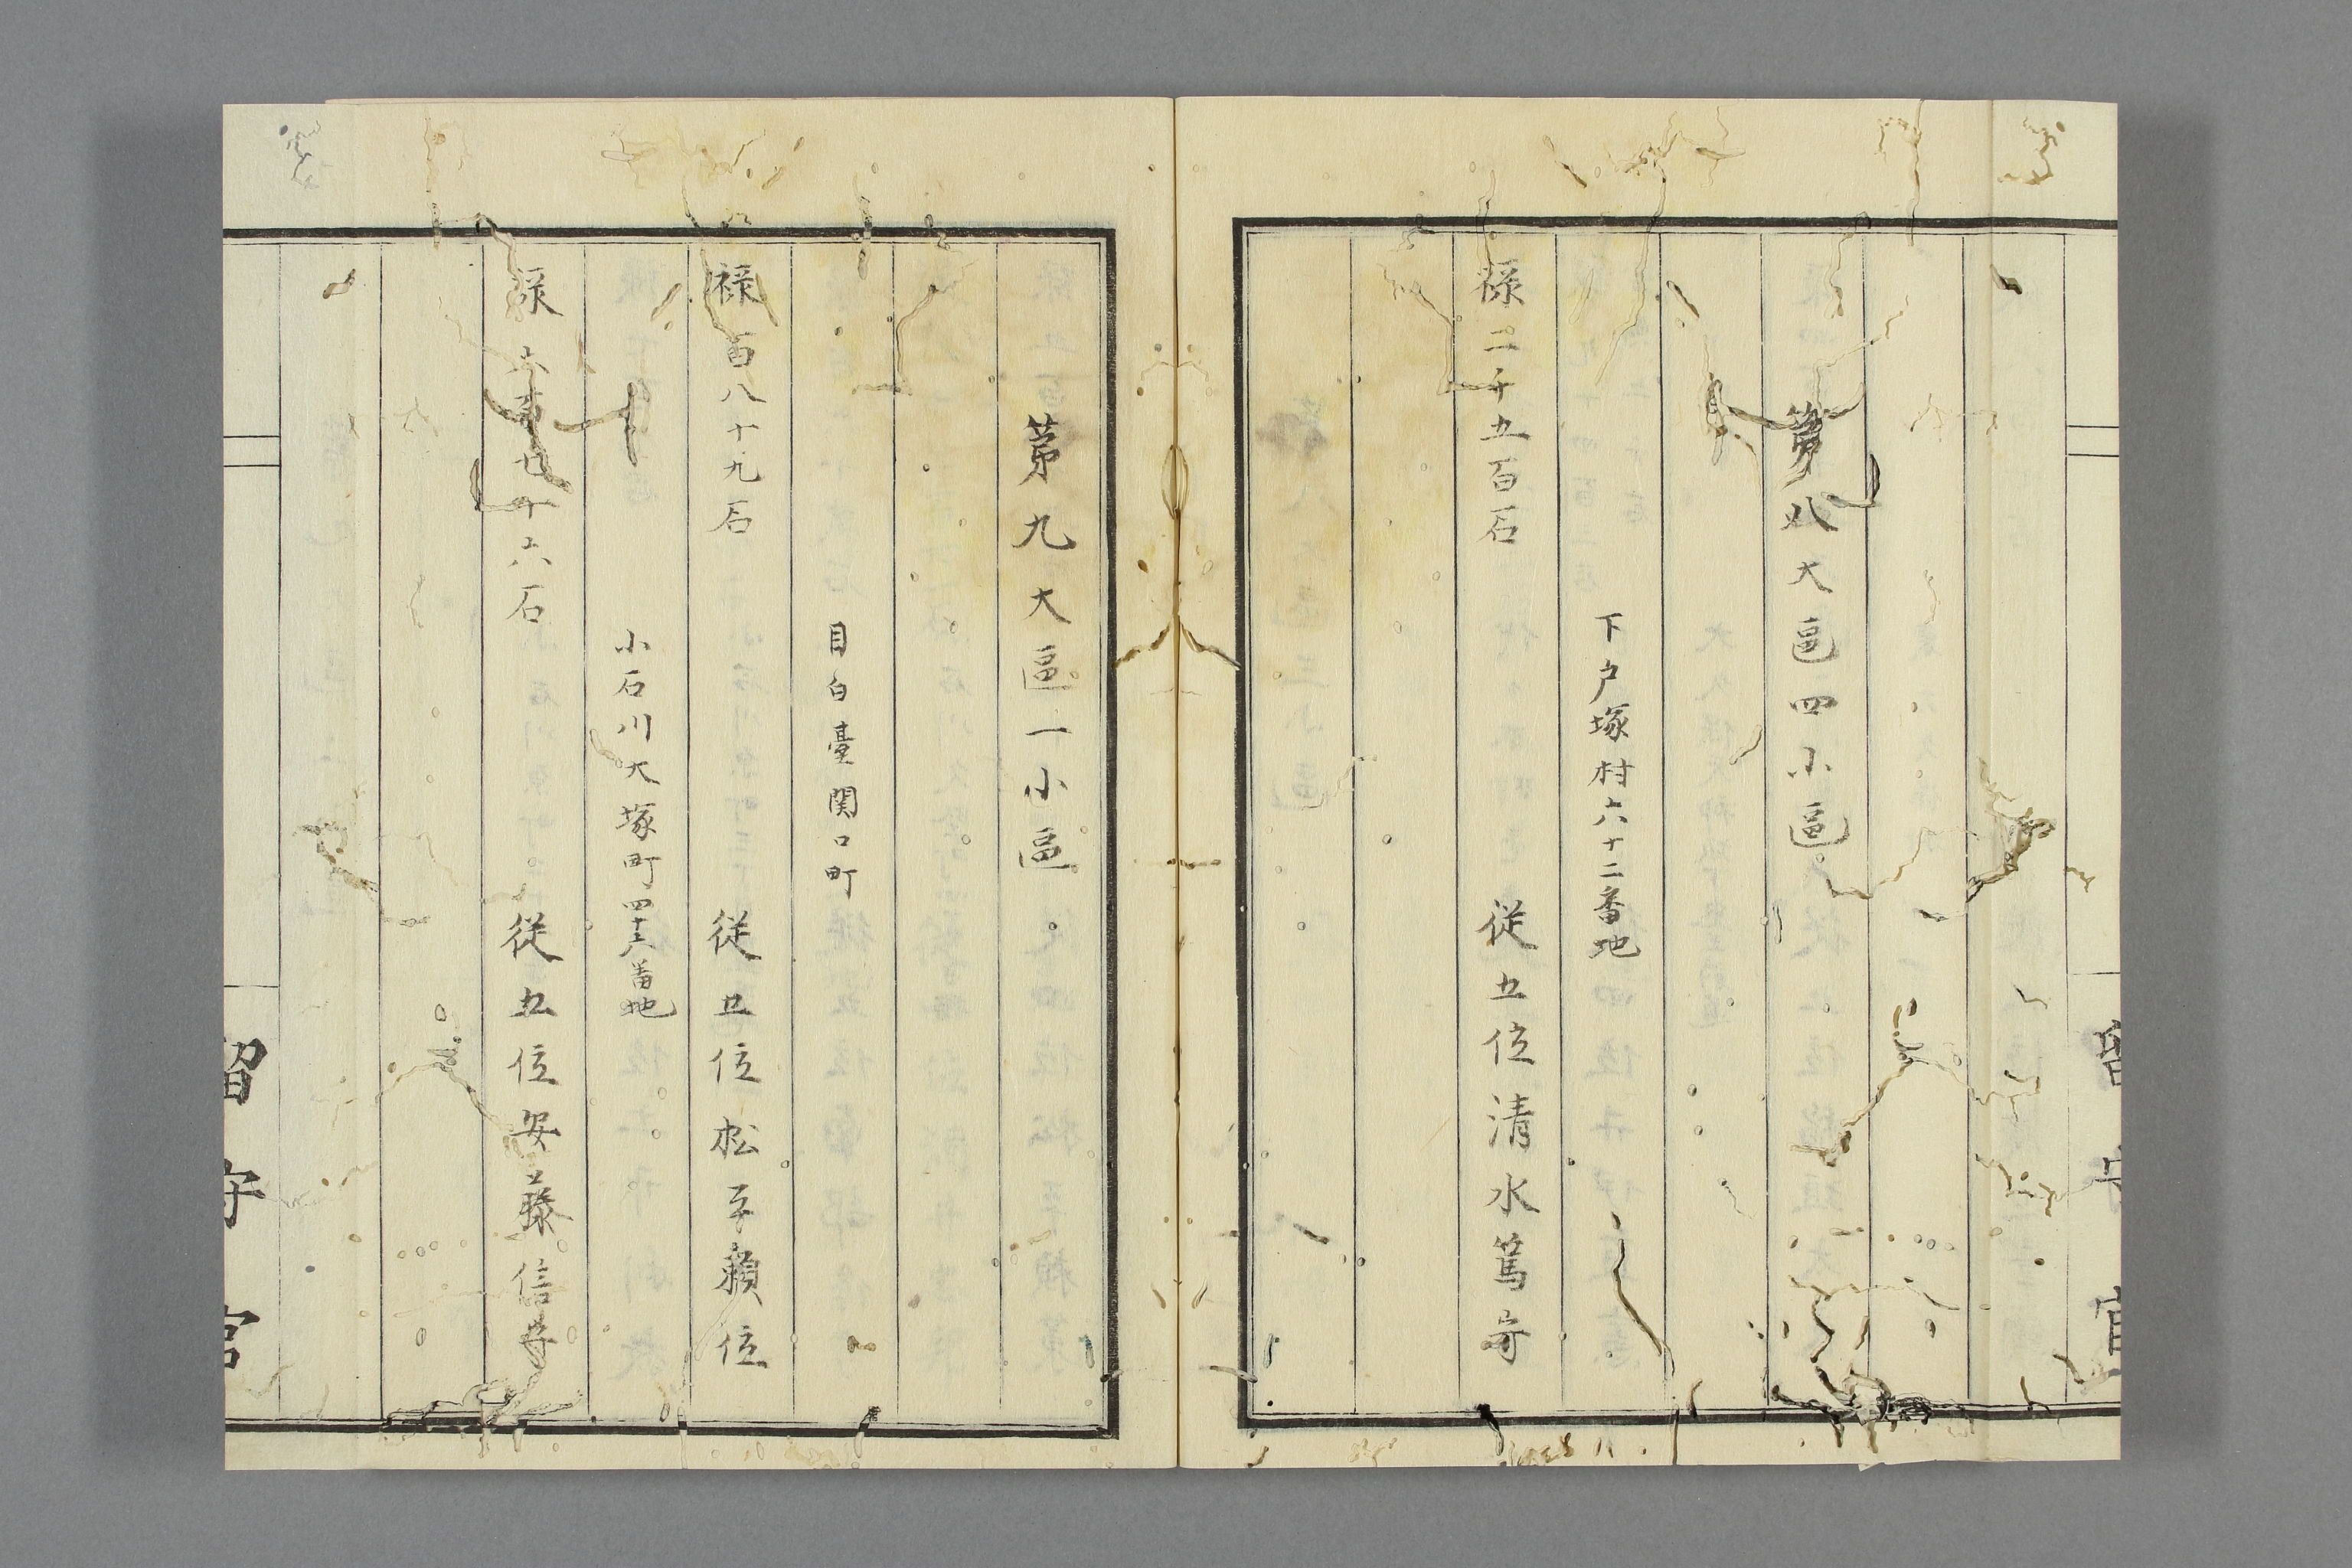 第八大區四小區
下戸塚村六十二番地
禄二千五百石
從五位清水篤守
第九大區一小區
目白臺関口町
禄百八十九石
從五位松平頼位
小石川大塚町四十六番地
禄六百七十六石
從五位安藤信守
留守官